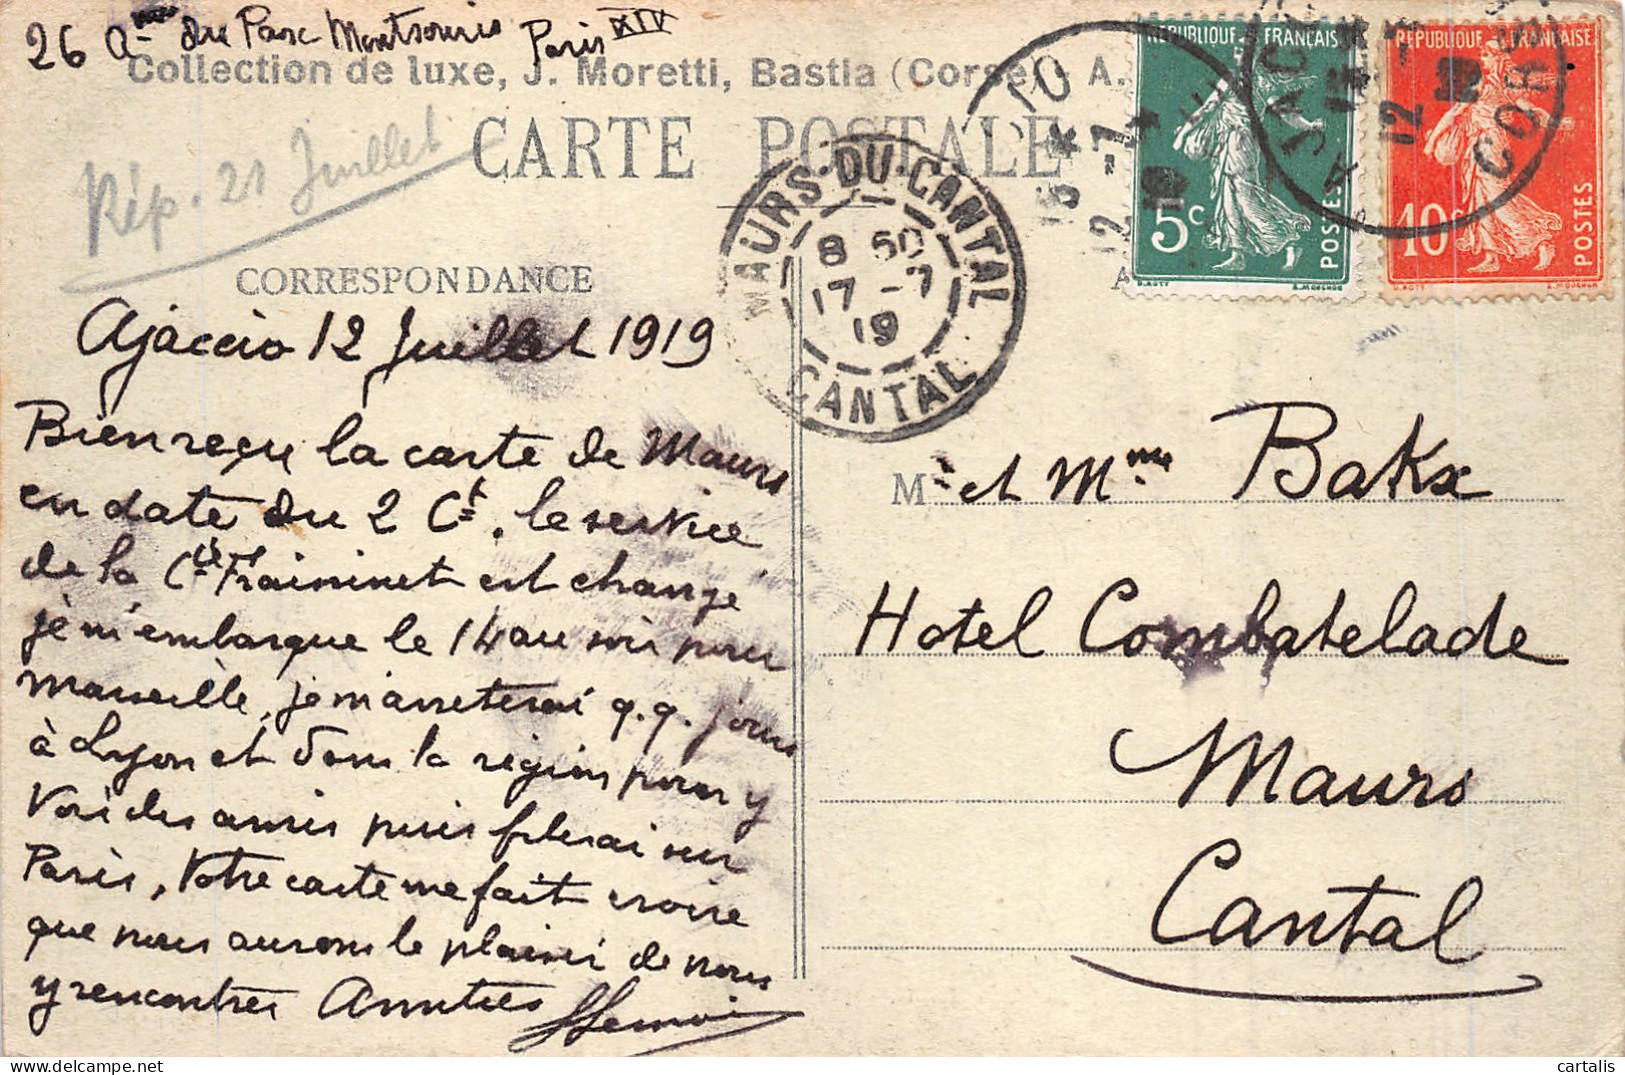 26 Ave du Parc Montsouris Paris XIV
Collection de luxe, J. Moretti, Bastia (Corse). A.
CARTE POSTALE
Rép. 21 Juillet
CORRESPONDANCE
Ajaccio 12 Juillet 1919
Bien reçu la carte de Maurs
en date du 2 Ct. le service
de la Cie Fraissinet est changé
je m'embarque le 14 au soir pour
Marseille, je m'arreterai q.q. jours
à Lyon et dans la région pour y
voir des amis puis filerai sur
Paris, Votre carte me fait croire
que nous aurons le plaisir de nous
y rencontrer Amitiés
MAURS-DU-CANTAL
8 50
17 - 7
19
CANTAL
15 *
12 - 7
19
REPUBLIQUE FRANÇAISE
5c
POSTES
O.ROTY
E.MOUCHON
AJACCIO
15 *
12 - 7
19
CORSE
REPUBLIQUE FRANÇAISE
10c
POSTES
O.ROTY
E.MOUCHON
A
Mr et Mme Bakx
Hotel Combatelade
Maurs
Cantal
cartalis